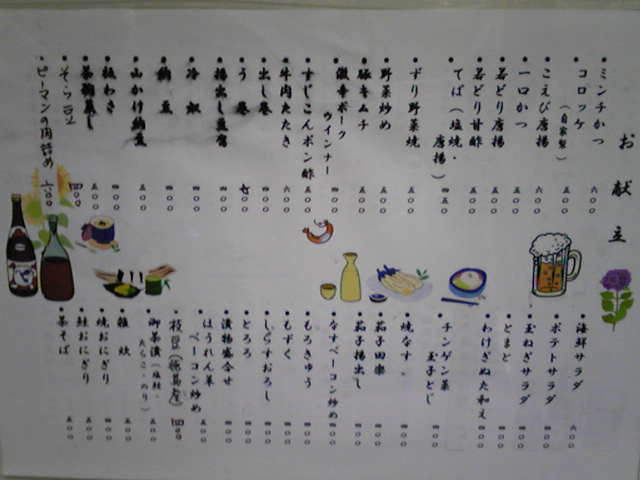 お献立
ミンチかつ 六〇〇
コロッケ(自家製) 五〇〇
こえび唐揚 六〇〇
一口かつ 五〇〇
若どり唐揚 五〇〇
若どり甘酢 五〇〇
てば(塩焼・唐揚) 四五〇
ずり野菜焼 五〇〇
野菜炒め 五〇〇
豚キムチ 五〇〇
激辛ポークウインナー 四〇〇
すじこんポン酢 五〇〇
牛肉たたき 六〇〇
出し巻 四〇〇
う巻
揚出し豆腐 五〇〇
冷奴 四〇〇
納豆 四〇〇
山かけ納豆 五〇〇
板わさ 四〇〇
茶碗蒸し 五〇〇
そら豆 四〇〇
ピーマンの肉詰め 六〇〇
海鮮サラダ 六〇〇
ポテトサラダ 四〇〇
玉ねぎサラダ 四〇〇
とまと 四〇〇
わけぎぬた和え 四〇〇
チンゲン菜玉子とじ 四〇〇
焼なす 四〇〇
茄子田楽 四〇〇
茄子揚出し 四〇〇
なすベーコン炒め 四〇〇
もろきゅう 四〇〇
もずく 四〇〇
しらすおろし 四〇〇
とろろ 四〇〇
漬物盛合せ 四〇〇
ほうれん草ベーコン炒め 五〇〇
枝豆(徳島産) 四〇〇
御茶漬(塩鮭・たらこ・のり) 五〇〇
雑炊 五〇〇
焼おにぎり 四〇〇
鮭おにぎり 四〇〇
茶そば 五〇〇